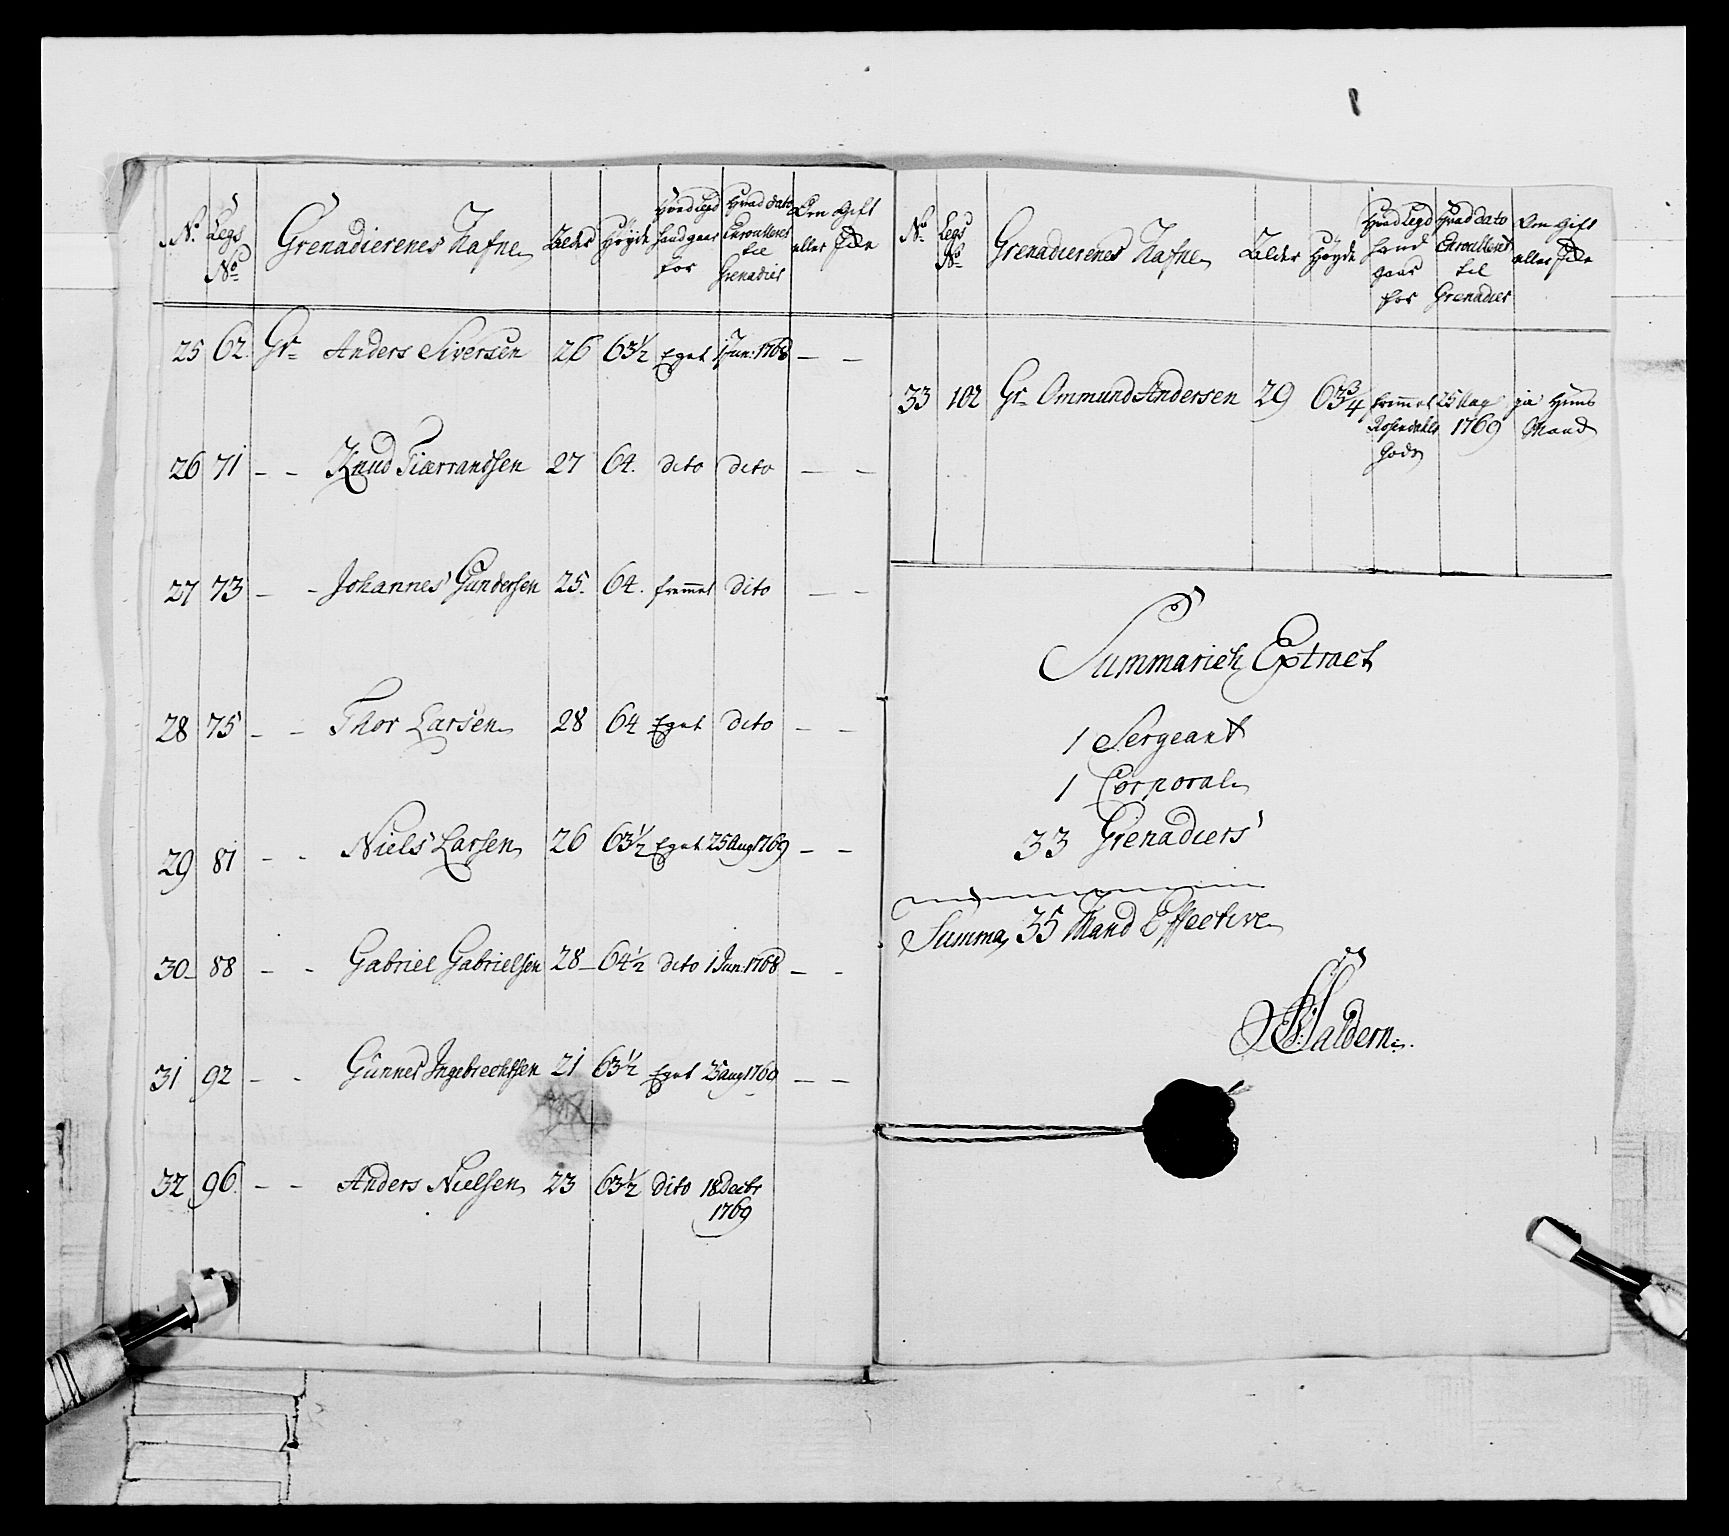 No. Legs No. Grenadierenes Nafne Alder Høyde Hvad Legd hand gaar for Hvad dato Enroulleret til Grenadier Om Gift eller Ide
25 62. Gr. Anders Siversen 26 63½ Eget 1 Jun: 1768 — —
26 71 — — Knud Tiærrandsen 27 64. dito dito — —
27 73 — — Johannes Gundersen 25. 64. fremmet dito — —
28 75 — — Thor Larsen 28 64 Eget dito — —
29 81 — — Niels Larsen 26 63½ Eget 25 Aug 1769 — —
30 88 — — Gabriel Gabrielsen 28 64½ dito 1 Jun: 1768 — —
31 92 — — Gunner Ingebrechtsen 21 63½ Eget 25 Aug 1769 — —
32 96 — — Anders Nielsen 23 63½ dito 18 Decbr
1769
No. Legs No. Grenadierenes Nafne Alder Høyde Hvad Legd hand gaar for Hvad dato Enroulleret til Grenadier Om Gift eller Ide
33 102 Gr. Ommund Andersen 29 63¾ fremmet 25 Aug ja Huus
Rosendahls 1769 Mand
Gods
Summarisk Extract
1 Sergeant
1 Corporal
33 Grenadiers
Summa 35 Mand Effective
Haldern.